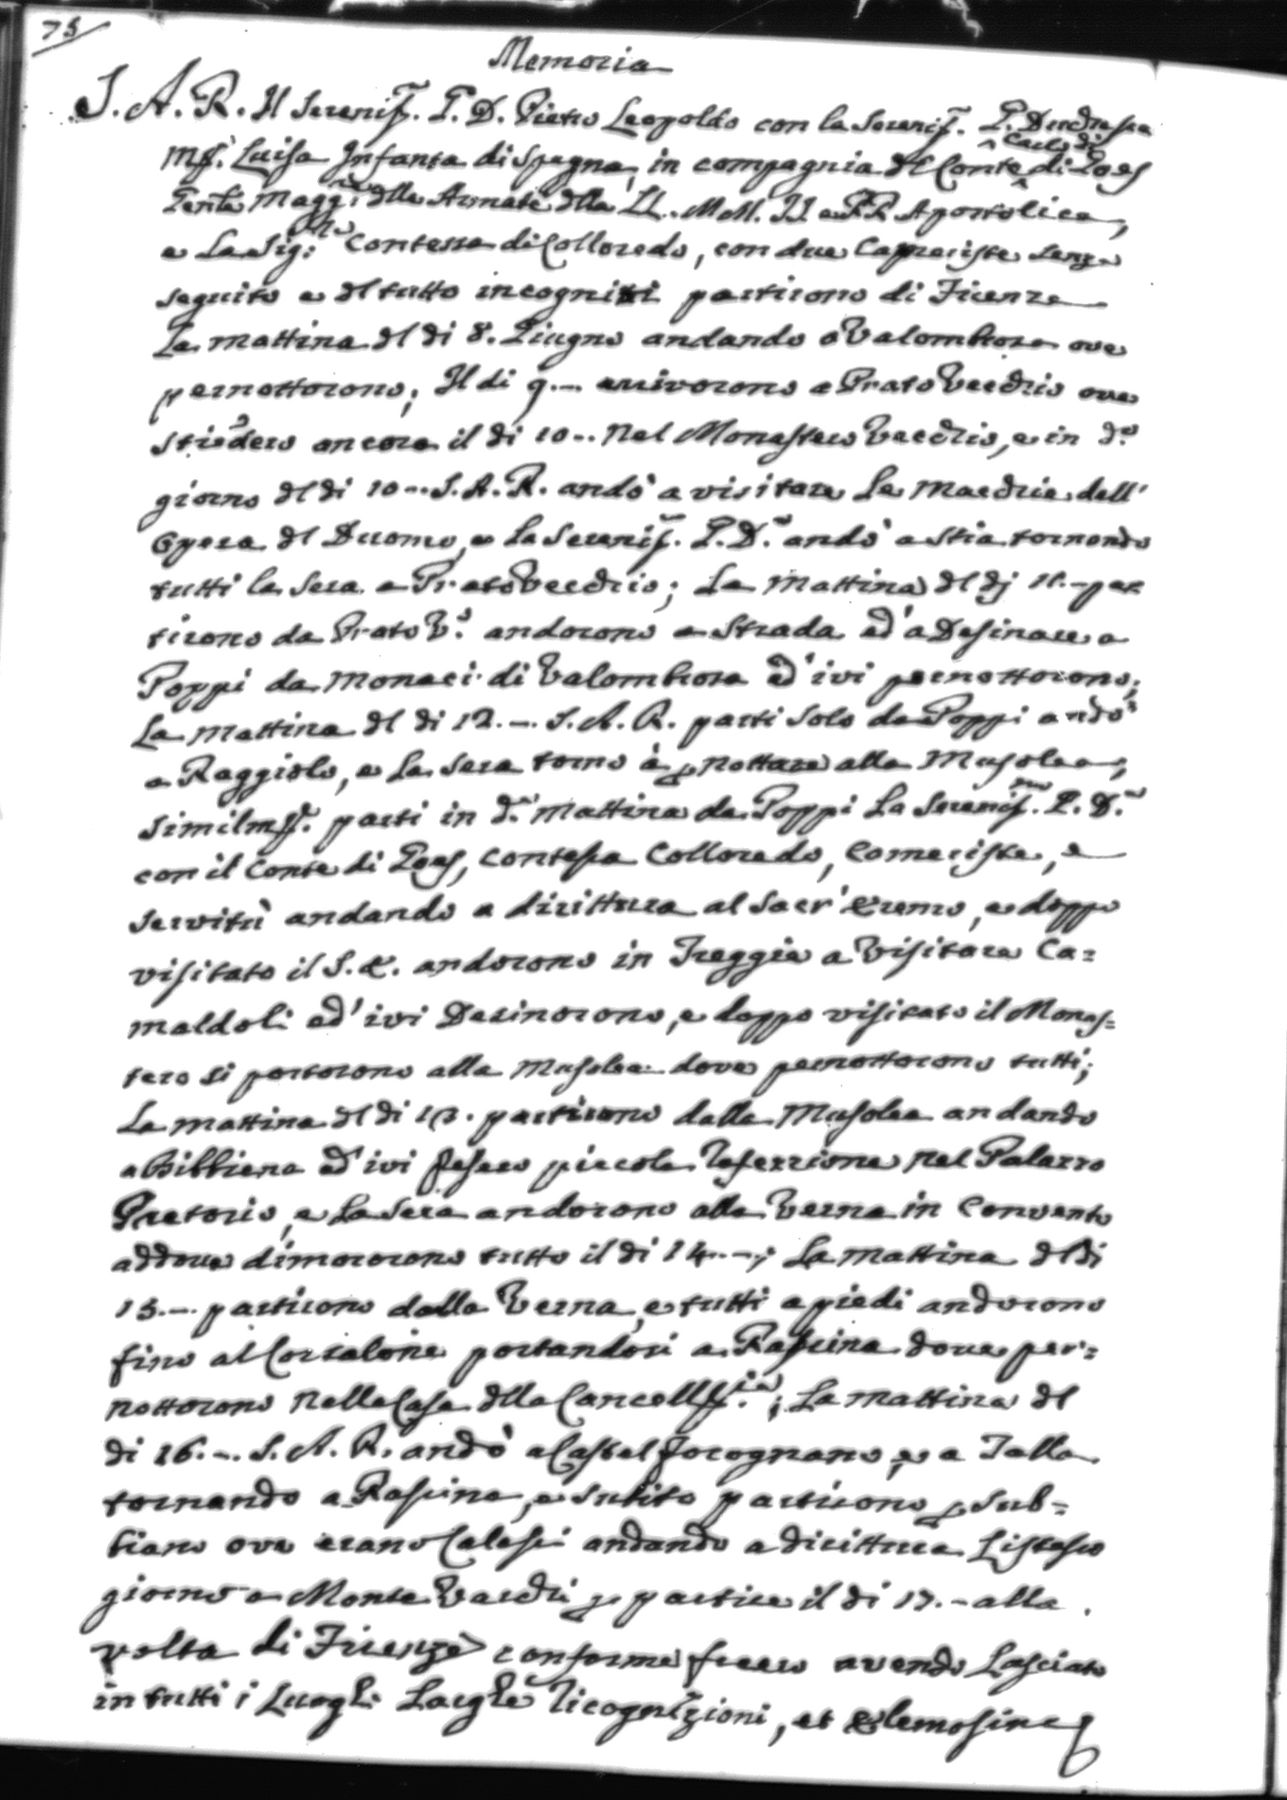 75
Memoria
S. A. R. Il Serenis. G. D. Pietro Leopoldo con la Serenis. G. Duchessa
Mª. Luisa Infanta di Spagna, in compagnia del Conte Carlo di Goes
Tente Magg.re delle Armate della LL. MM. II e RR Apostolica,
e La Sig.ra Contessa di Colloredo, con due Cameriste senza
seguito e del tutto incogniti partirono di Firenze
La mattina del di 8. Giugno andando a Valombrosa ove
pernottorono; Il di 9.— arrivorono a Prato Vecchio ove
stiedero ancora il di 10-- Nel Monastero Vecchio, e in d.o
giorno del di 10-- S. A. R. andò a visitare Le Macchie dell'
Opera del Duomo, e La Serenis. G. D.a andò a Stia tornando
tutti la sera a Prato Vecchio; La Mattina del dj 11.- par
tirono da Prato V.o andorono a Strada ed' a Desinare a
Poppi da Monaci di Valombrosa ed' ivi pernottorono;
La mattina del di 12.-. S. A. R. parti Solo da Poppi andò
a Raggiolo, e La sera torno à p nottare alla Musolea,
similmte. parti in d.a mattina da Poppi La Serenis.ma G. D.a
con il Conte di Goes, Contessa Colloredo, Cameriste, e
servitù andando a dirittura al Sacr' Eremo, e doppo
visitato il S. E. andorono in Treggia a Visitare Ca=
maldoli ed' ivi Desinorono, e doppo visitato il Monas=
tero si portorono alla Musolea dove pernottorono tutti;
La mattina del di 13. partirono dalla Musolea andando
a Bibbiena ed' ivi fecero piccola Refezzione nel Palazzo
Pretorio, e La sera andorono alla Verna in Convento
addove dimororono tutto il di 14.-; La Mattina del di
15.-. partirono dalla Verna, e tutti a piedi andorono
fino al Corsalone portandosi a Rassina dove per=
nottorono Nella Casa della Cancell.ia; La mattina del
di 16.-. S. A. R. andò a Castel focognano, e a Talla
tornando a Rassina, e subito partirono p Sub=
biano ove erano Calessi andando a dirittura L'istesso
giorno a Monte Varchi p partire il di 17.- alla
volta di Firenze conforme fecero avendo Lasciato
in tutti i Luoghi Larghe Ricognizioni, et Elemosine